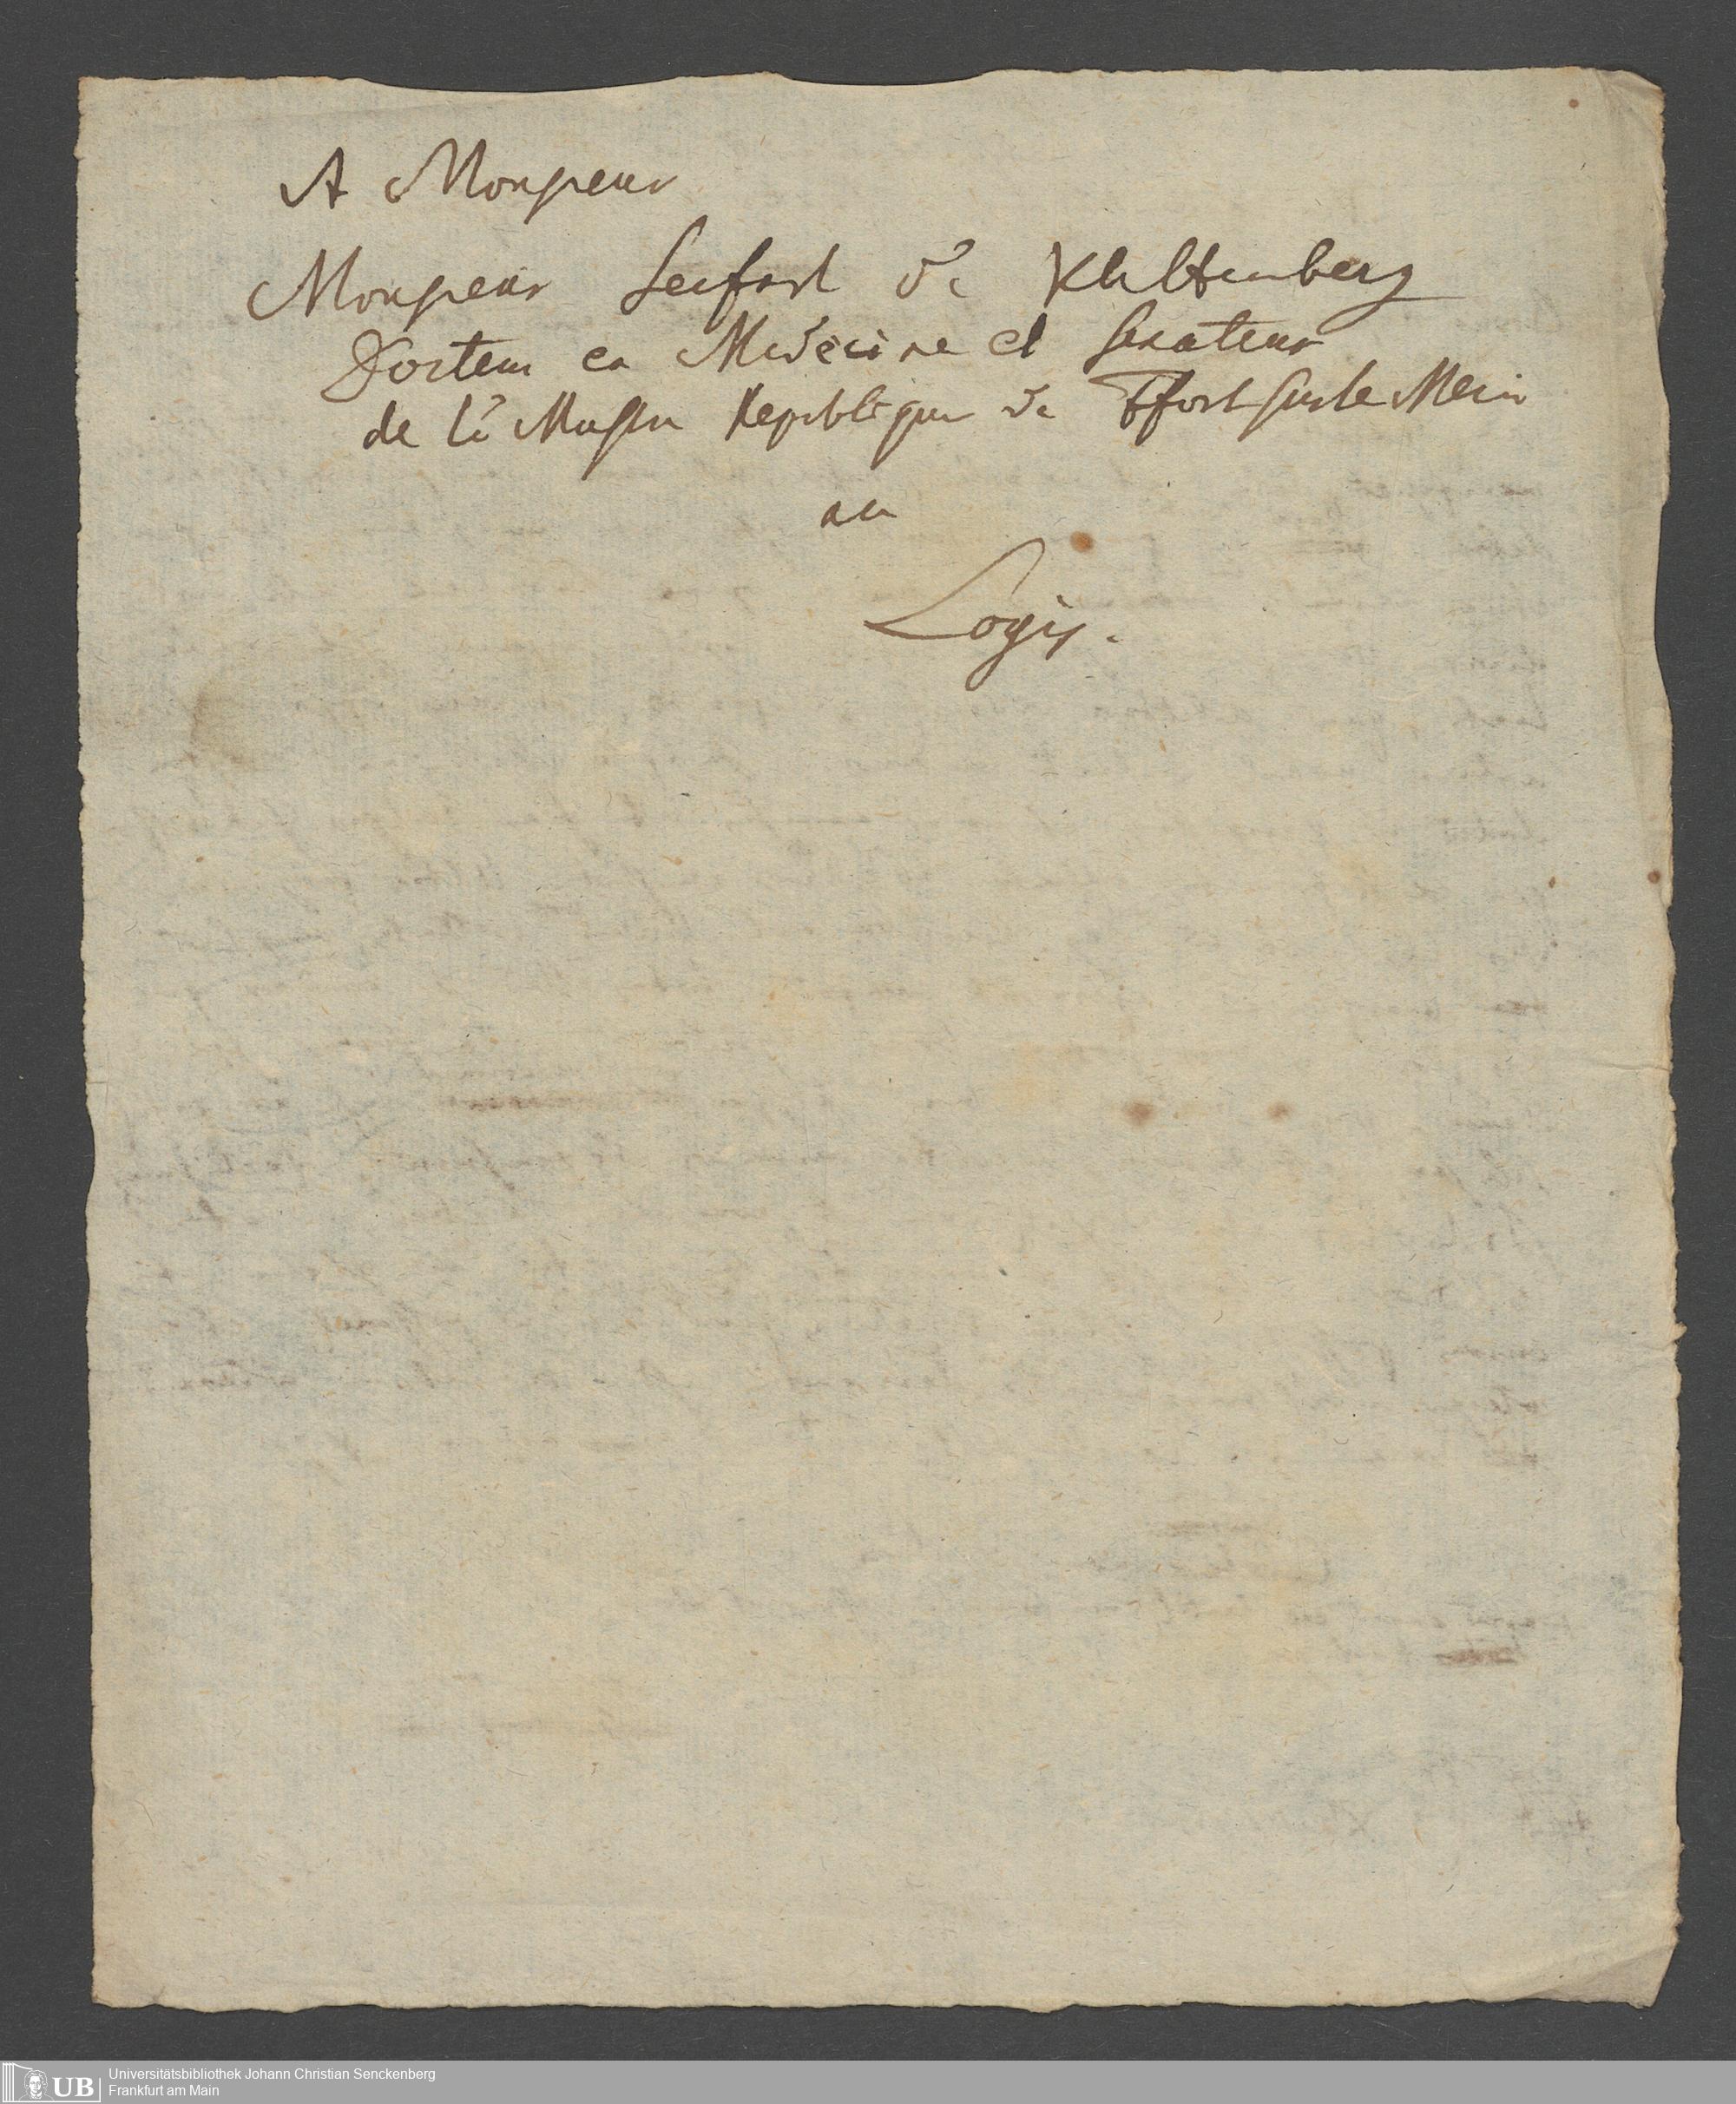 A Monsieur
Monsieur Seifart de Klettenberg
Docteur en Medecine et Senateur
de l'illustre Republique de Ffort sur le Mein
au
Logis.
UB
Universitätsbibliothek Johann Christian Senckenberg
Frankfurt am Main